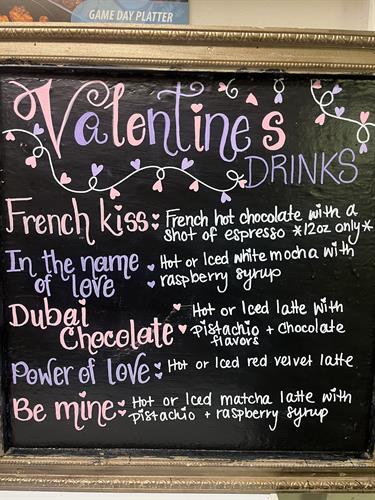 GAME DAY PLATTER
Valentine's
DRINKS
French kiss: French hot chocolate with a
shot of espresso *12oz only*
In the name of love Hot or Iced white mocha with
raspberry syrup
Dubai Chocolate Hot or Iced latte with
pistachio + chocolate
flavors
Power of love: Hot or Iced red velvet latte
Be mine: Hot or Iced matcha latte with
pistachio + raspberry syrup